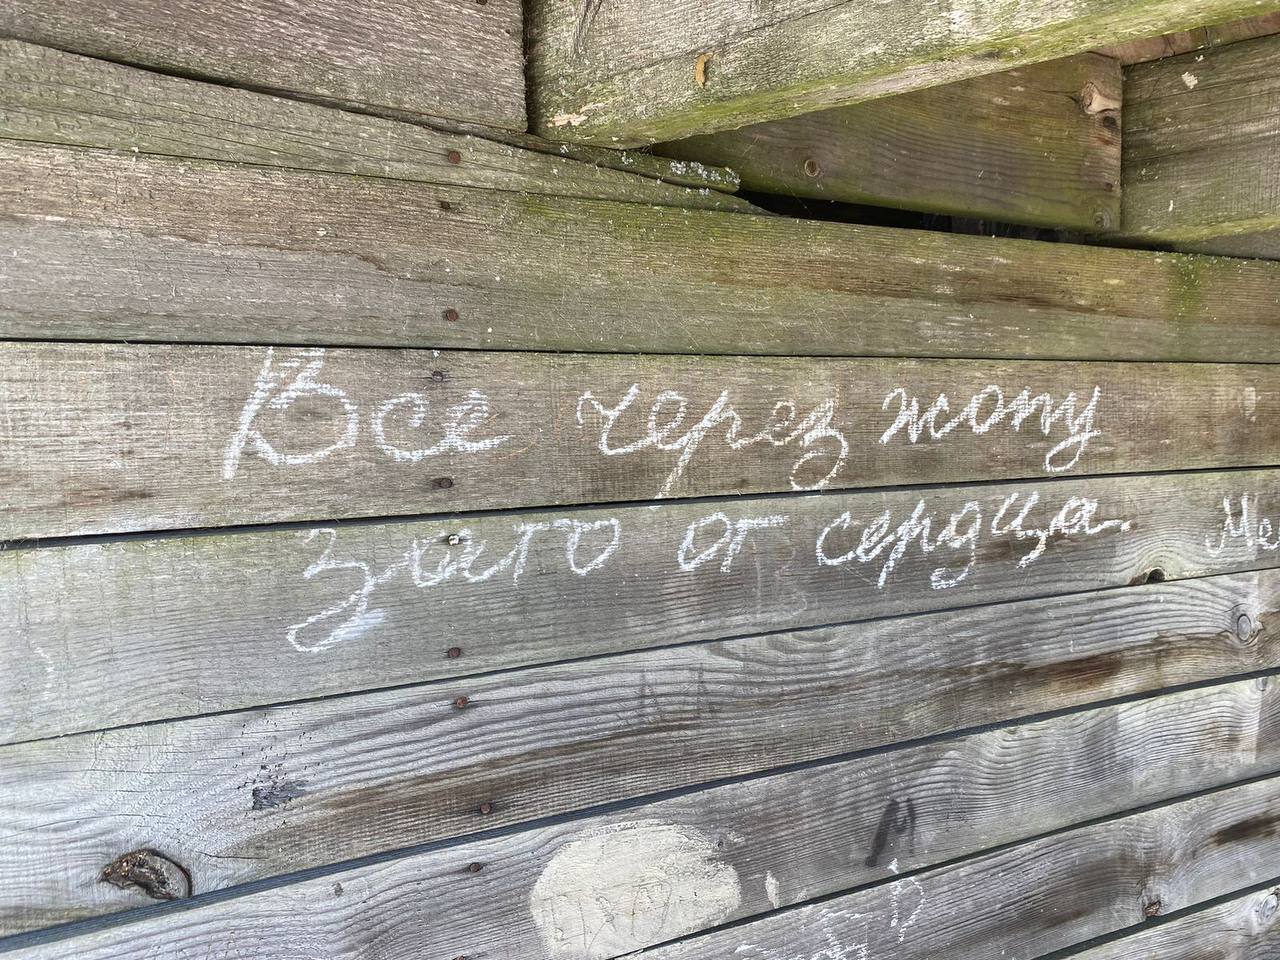 Все через жопу
зато от сердца. Ме
М